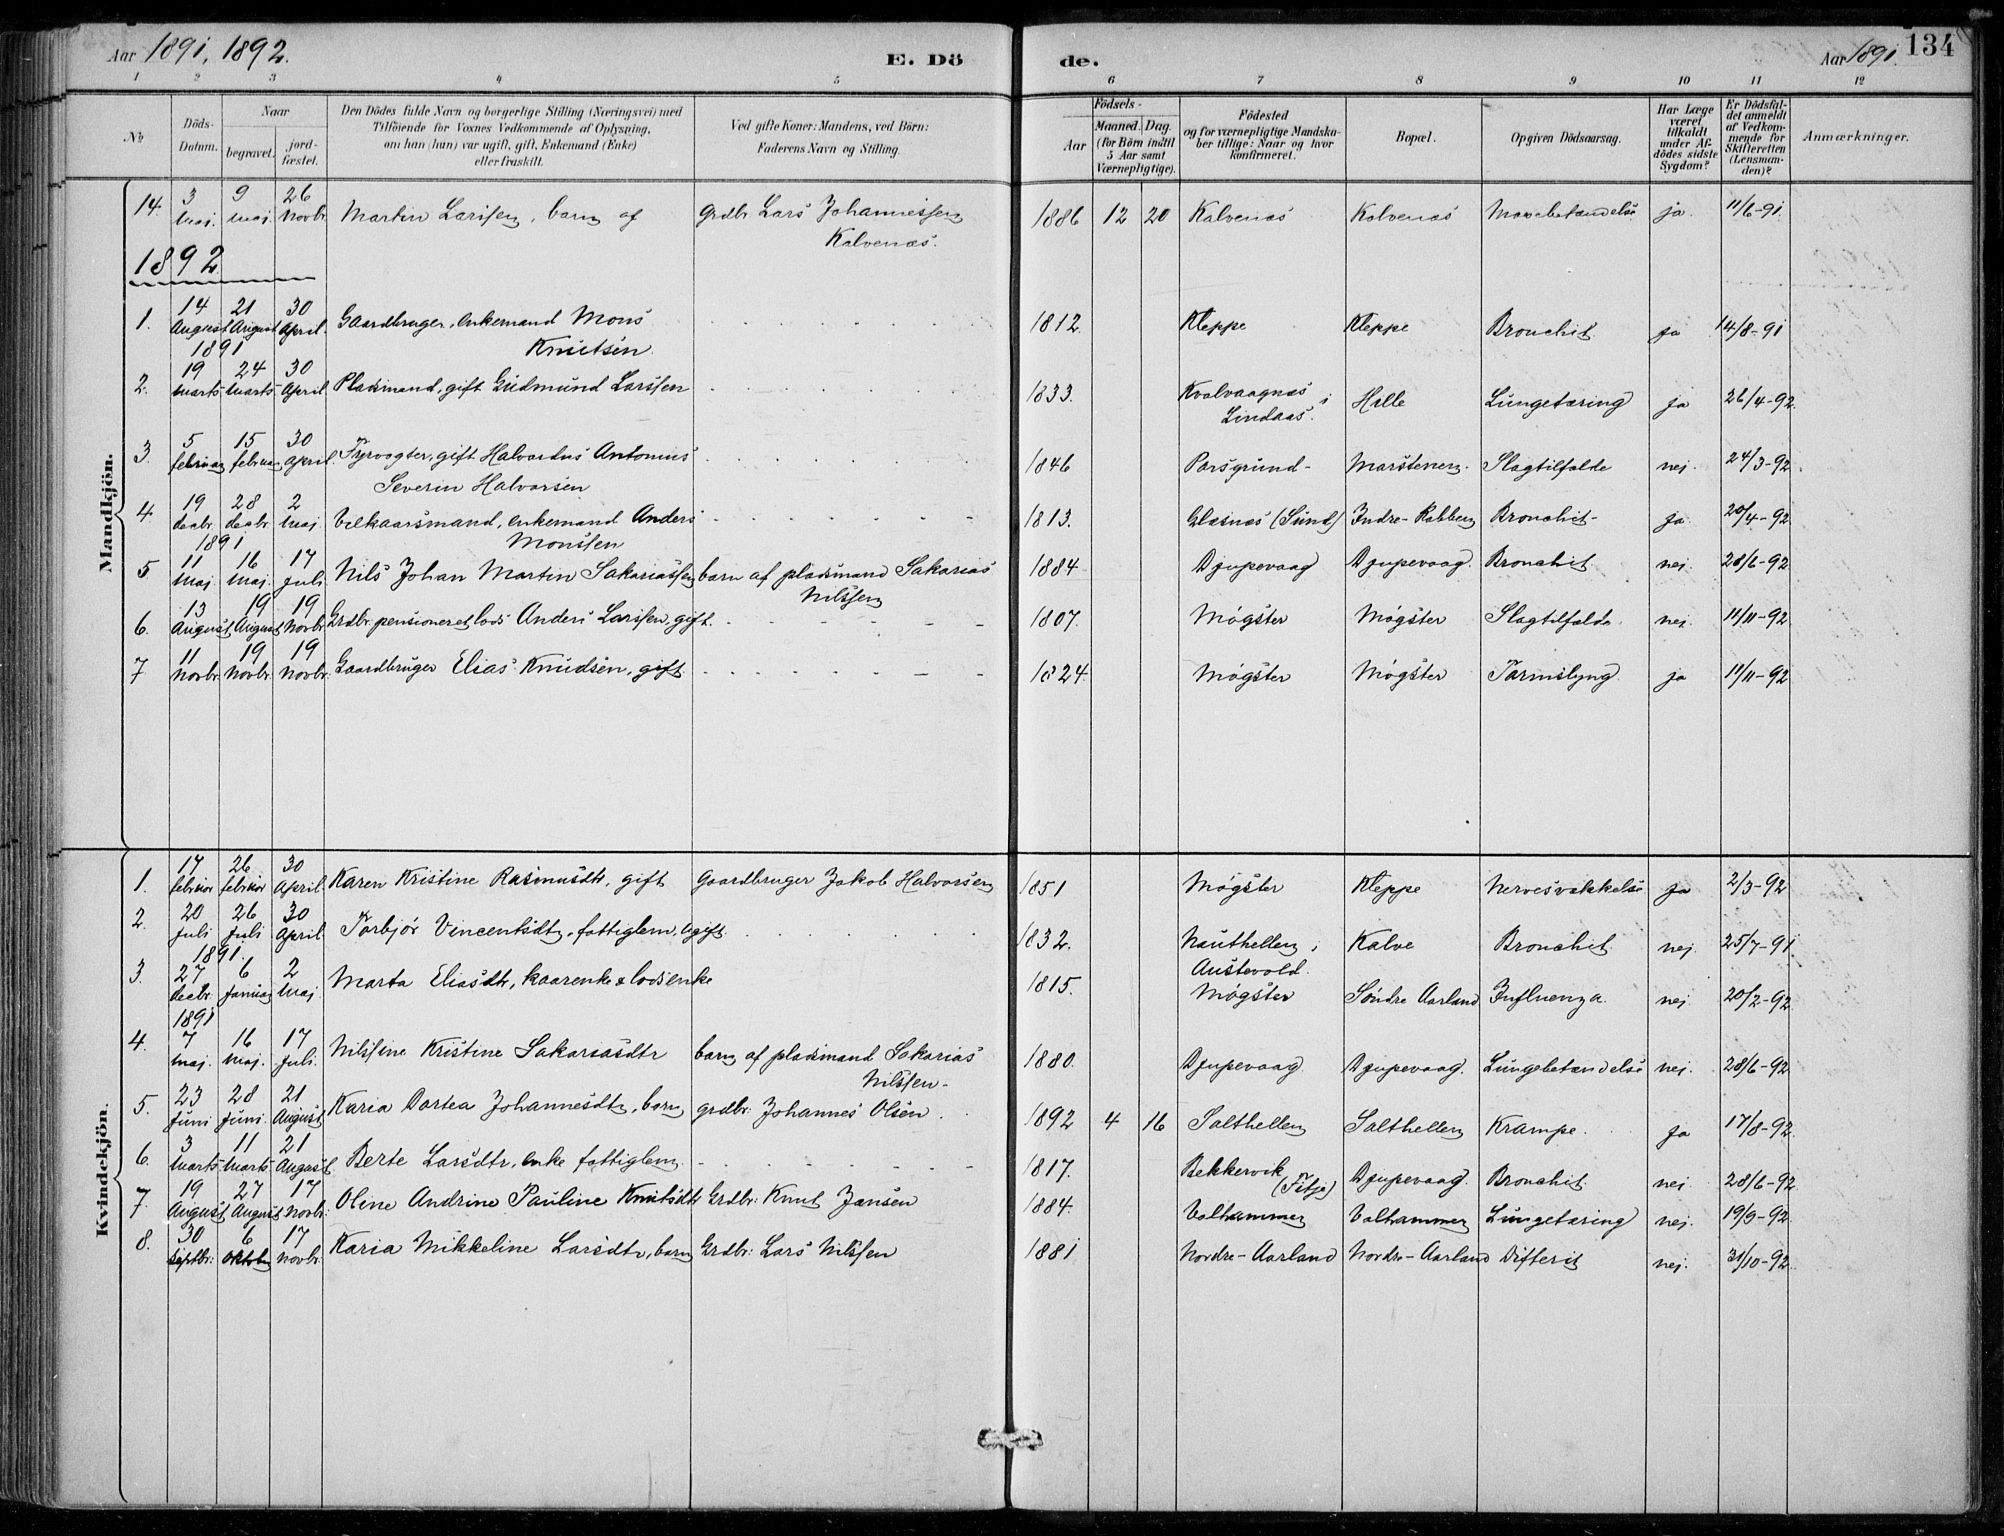 Aar 1891, 1892.
E. Dö
de.
Aar 1891.
134
1 2 3 4 5 6 7 8 9 10 11 12
No
Döds-Datum.
Naar
begravet.
jord-fæstet.
Den Dödes fulde Navn og borgerlige Stilling (Næringsvei) med
Tilföiende for Voxnes Vedkommende af Oplysning,
om han (hun) var ugift, gift, Enkemand (Enke)
eller fraskilt.
Ved gifte Koner: Mandens, ved Börn:
Faderens Navn og Stilling.
Födsels-
Aar
Maaned. Dag.
(for Börn indtil
5 Aar samt
Værnepligtige).
Födested
og for værnepligtige Mandska-
ber tillige: Naar og hvor
konfirmeret.
Bopæl.
Opgiven Dödsaarsag.
Har Læge
været
tilkaldt
under Af-
dödes sidste
Sygdom?
Er Dödsfal-
det anmeldt
af Vedkom-
mende for
Skifteretten
(Lensman-
den)?
Anmærkninger.
Mandkjön.
14. 3 Maj. 9 maj. 26 Novbr. Martin Larssen, barn af Grdbr. Lars Johannessen Kalvenæs. 1886 12 20 Kalvenæs Kalvenæs Mavebetændelse ja. 11/6-91.
1892
1. 14 August 1891 21 August 30 April. Gaardbruger, enkemand Mons Knutsen. 1812. Kleppe Kleppe Bronchit. ja 14/8-91
2. 19 Marts 24 Marts 30 April. Pladsmand, gift Gudmund Larssen 1833. Kvalvaagnæs i Lindaas. Hille Lungetæring ja 26/4-92.
3. 5 februar 15 februar 30 April. Fyrvogter, gift Halvardus Antonius Severin Halvorsen 1846 Porsgrund- Marstenen. Slagtilfælde nej. 24/3-92.
4. 19 decbr. 1891 28 decbr. 2 Maj. Vilkaarsmand, enkemand Anders Monssen 1813. Glæsnæs (Sund) Indre-Rabben Bronchit- ja. 20/4-92
5 11 maj. 16 maj. 17 Juli. Nils Johan Martin Sakariassen barn af pladsmand Sakarias Nilssen 1884 Djupevaag Djupevaag. Bronchit nej. 28/6-92
6. 13 August 19 August 19 Novbr. Grdbr. pensioneret lods Anders Larssen, gift. 1807. Møgster Møgster Slagtilfælde. nej. 11/11-92
7 11 Novbr. 19 Novbr. 19 Novbr. Gaardbruger Elias Knudsen, gift 1824. Møgster Møgster Tarmslyng. ja 11/11-92
Kvindekjön.
1. 17 februar 26 februar 30 April Karen Kristine Rasmusdtr, gift Gaardbruger Jakob Halvorsen 1851 Møgster Kleppe Nervesvækkelse ja 2/3-92
2. 20 Juli 1891. 26 Juli 30 April. Torbjør Vincentsdtr, fattiglem, ugift. 1832. Nauthellen i Austevold. Kalve Bronchit. nej. 25/7-91
3. 27 decbr. 1891 6 Januar 2 Maj. Marta Eliasdtr, kaarenke & lodsenke 1815. Møgster Søndre Aarland Influenza. nej. 20/2-92.
4. 7 maj. 16 maj. 17 Juli. Nilsine Kristine Sakariasdtr barn af pladsmand Sakarias Nilssen- 1880. Djupevaag Djupevaag. Lungebetændelse nej. 28/6-92
5. 23 Juni 28 Juni. 21 August Karia Dortea Johannesdtr, barn grdbr: Johannes Olsen. 1892 4 16 Salthellen Salthellen Krampe. ja 17/8-92.
6. 3 Marts 11 Marts 21 August. Berte Larsdtr, enke fattiglem. 1817. Bekkervik (Fitje) Djupevaag. Bronchit. nej. 28/6-92
7. 19 August 27 August 17 Novbr: Oline Andrine Pauline Knutsdtr Grdbr: Knut Jansen 1884. Valhammer Valhammer Lungetæring nej. 19/9-92.
8. 30 Septbr: 6 oktober 17 Novbr. Karia Mikkeline Larsdtr, barn Grdbr: Lars Nilssen 1881 Nordre-Aarland Nordre-Aarland Difterit nej. 31/10-92.